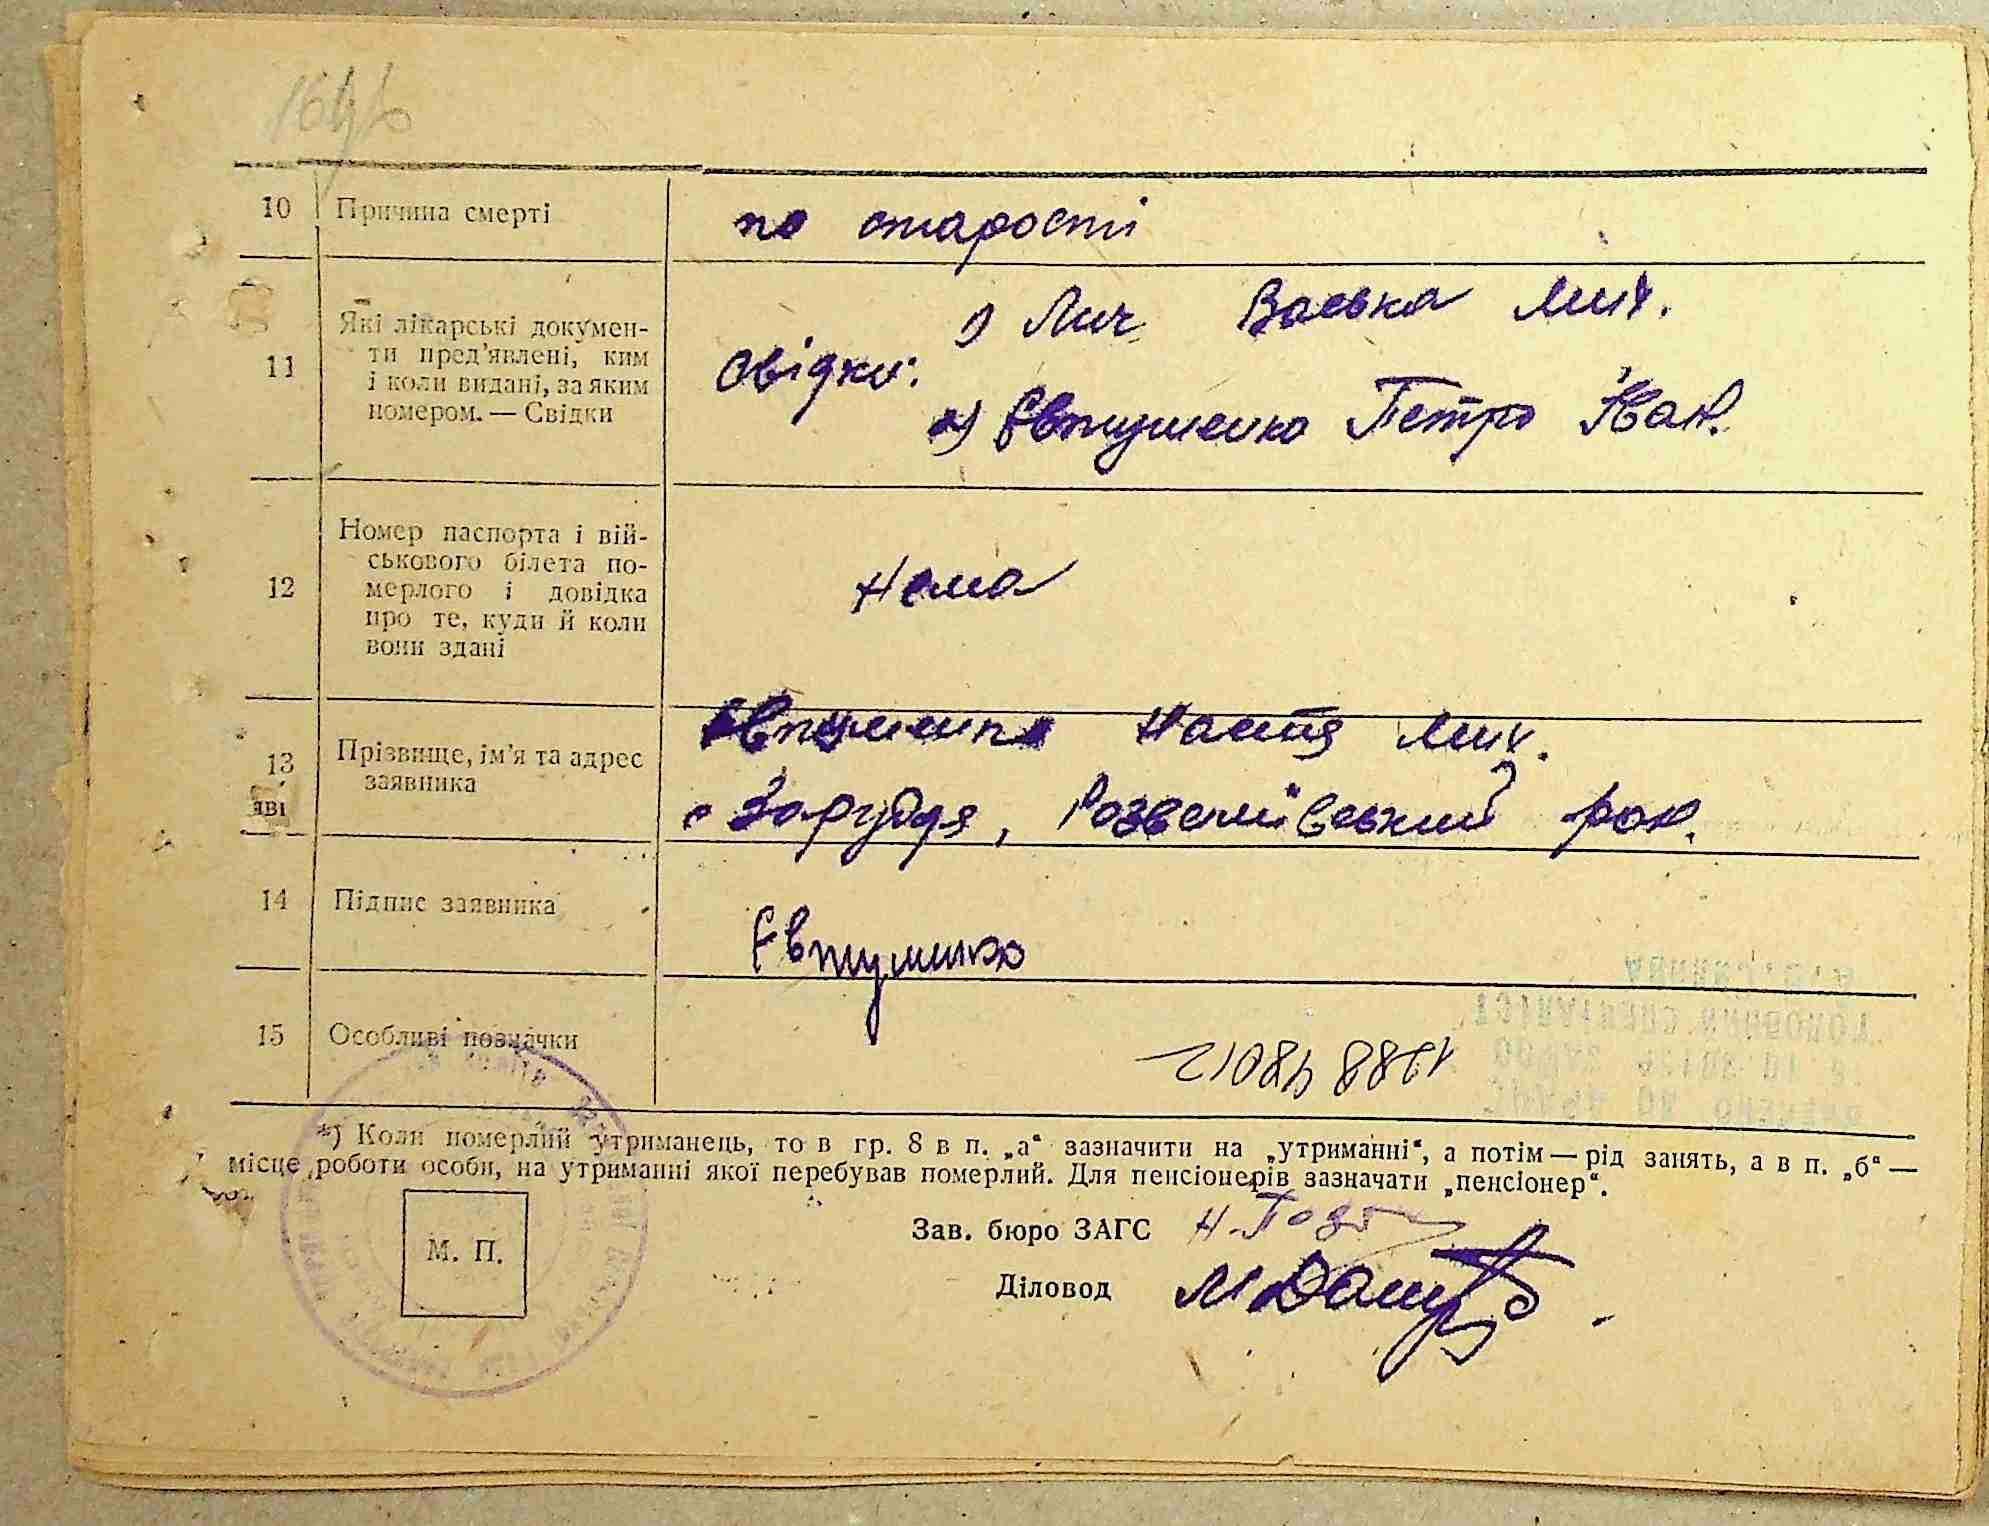 10 Причина смерті по старості
11 Які лікарські докумен-
ти пред'явлені, ким
і коли видані, за яким
номером. — Свідки
Свідки:
1) Лич Васька Мих.
2) Євтушенко Петро Іван.
12 Номер паспорта і вій-
ськового білета по-
мерлого і довідка
про те, куди й коли
вони здані
нема
13 Прізвище, ім'я та адрес
заявника
Настя Мих.
с Заруддя, Розважівський рай.
яві
14 Підпис заявника
15 Особливі позначки
*) Коли померлий утриманець, то в гр. 8 в п. „а“ зазначити на „утриманні“, а потім — рід занять, а в п. „б“ —
місце роботи особи, на утриманні якої перебував померлий. Для пенсіонерів зазначати „пенсіонер“.
М. П.
Зав. бюро ЗАГС
Діловод